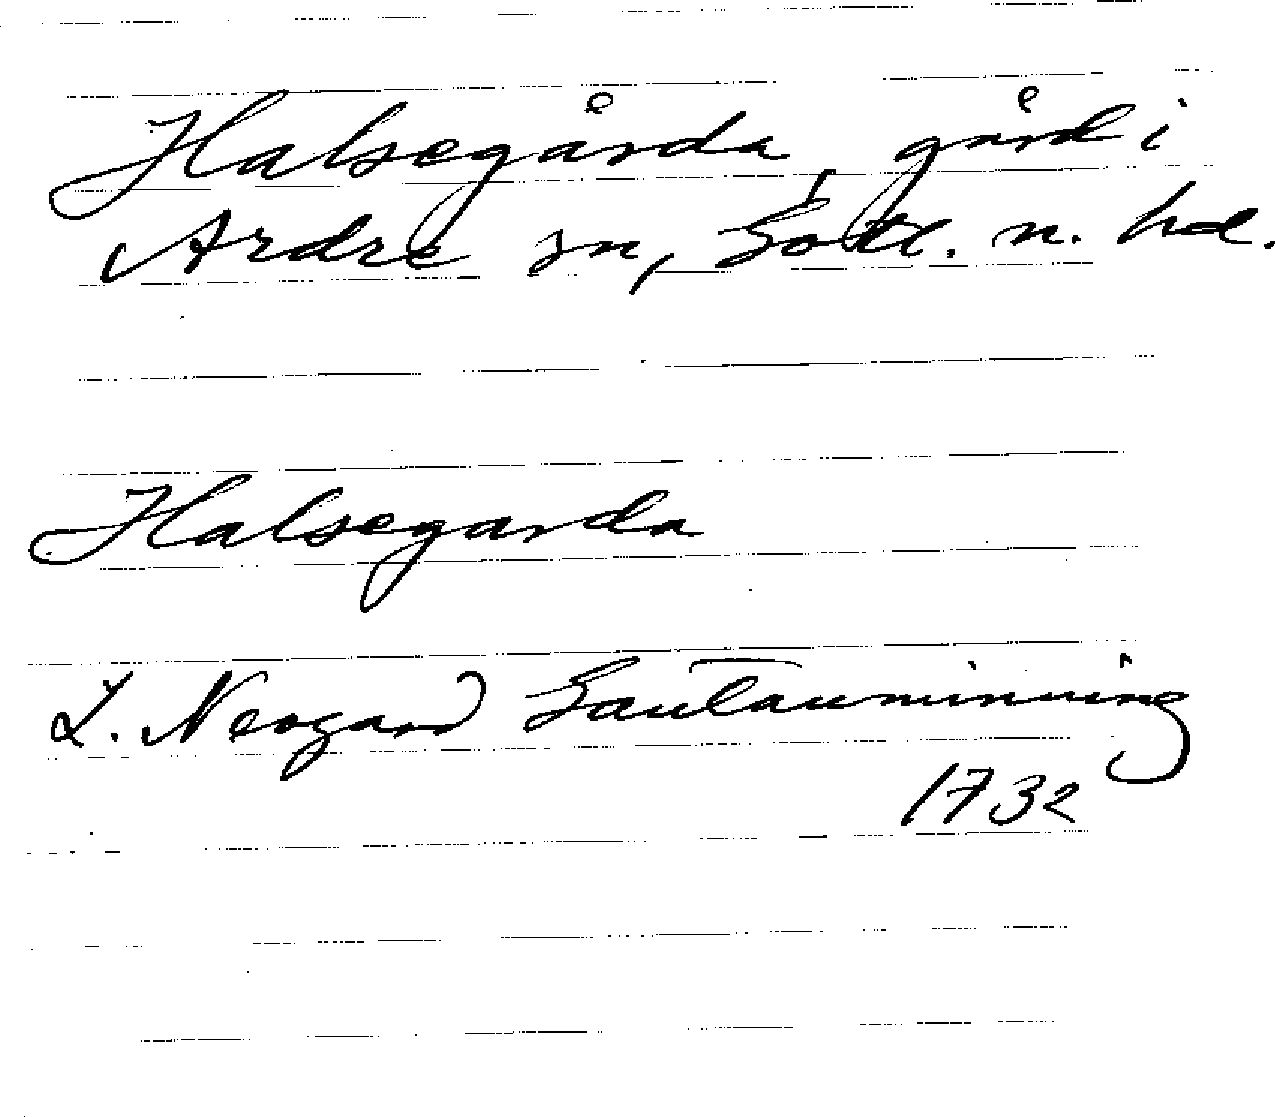 Halsegårda, gård i
Ardre sn, Gotl. n. hd.
Halsegarda
L. Neogard Gautauminning
1732